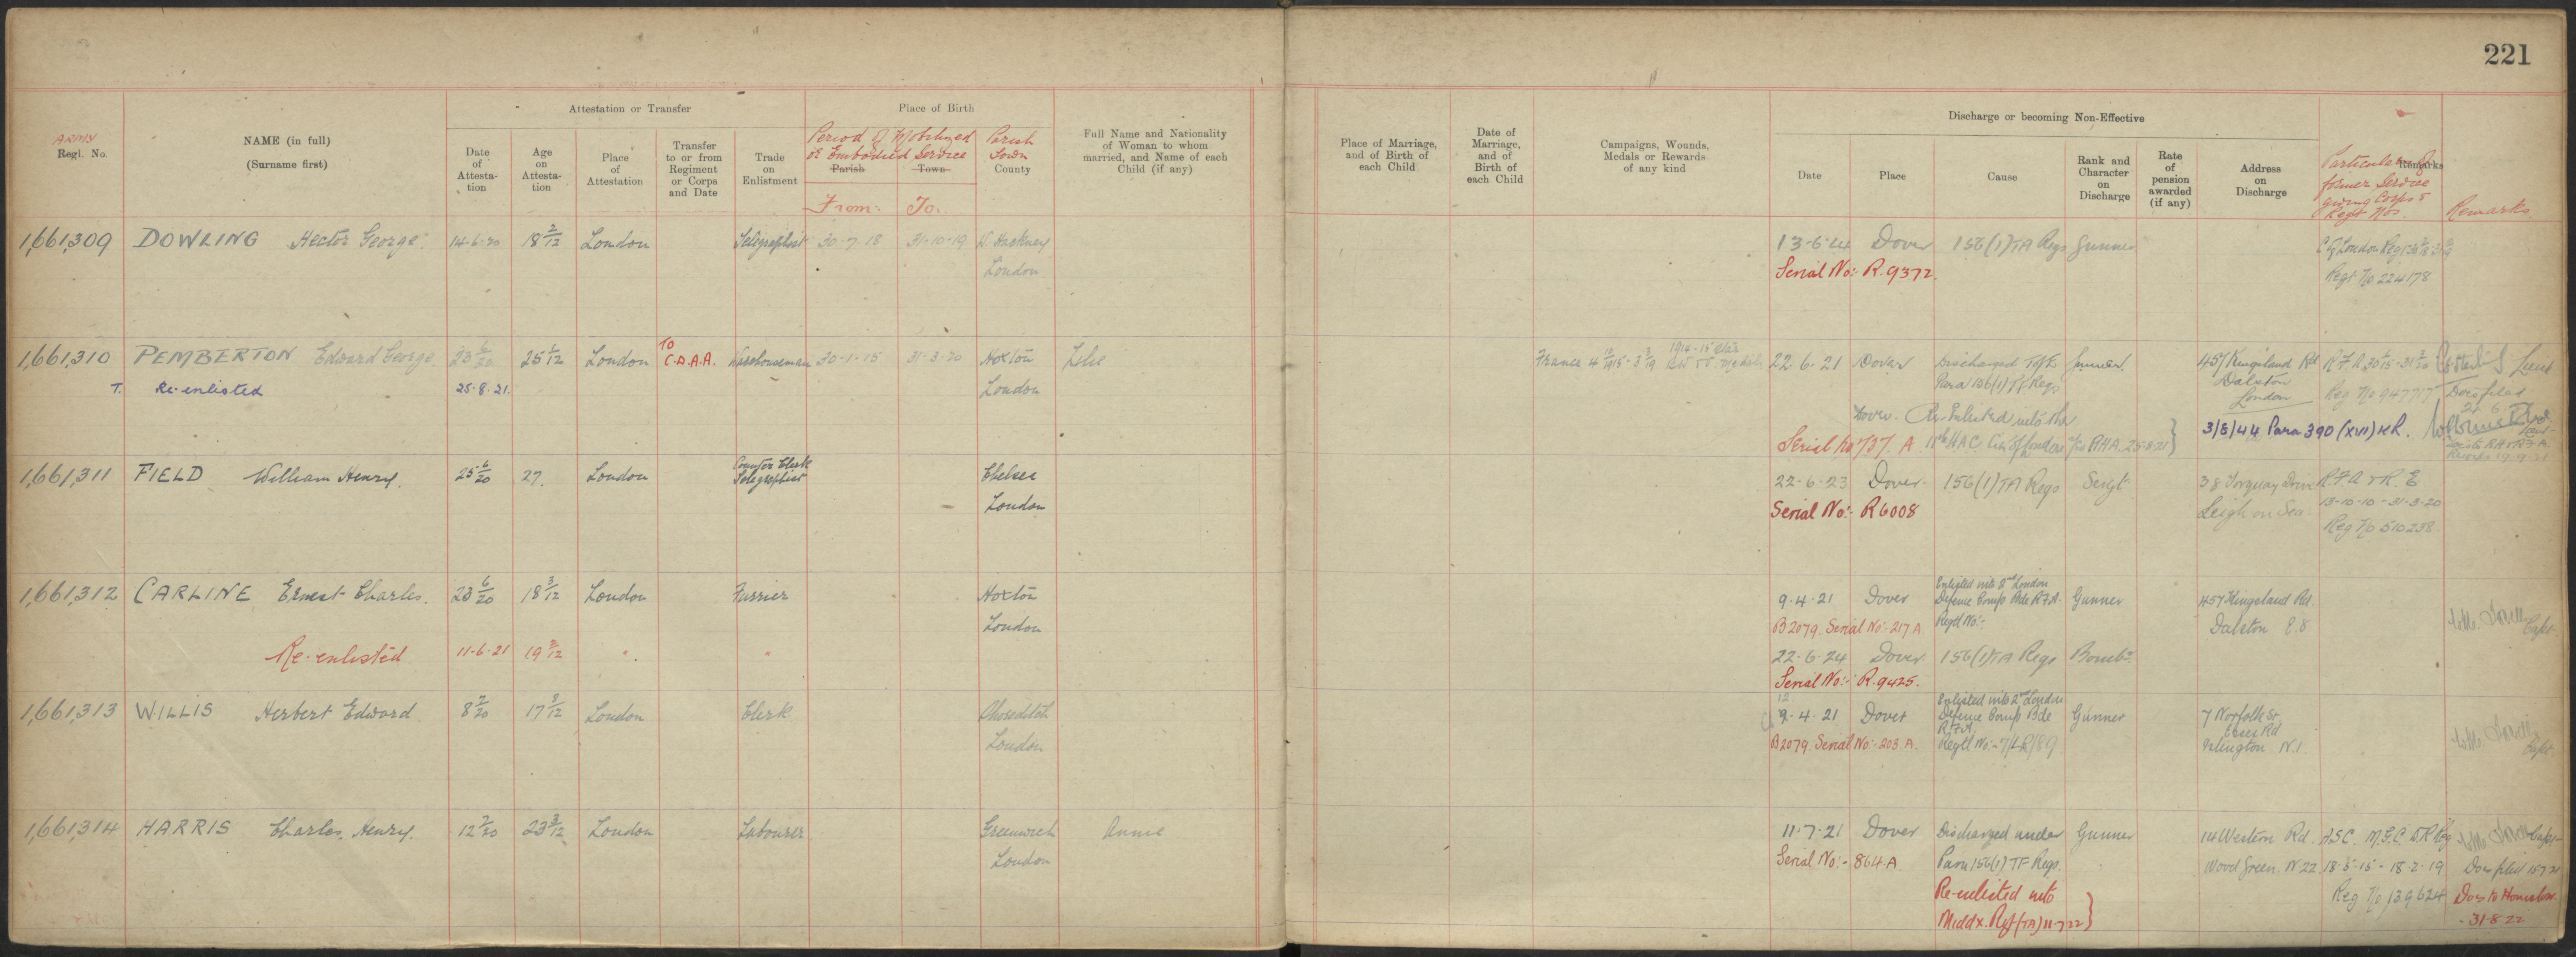 221
Attestation or Transfer
Place of Birth
Discharge or becoming Non-Effective
ARMY
Regl. No.
NAME (in full)
(Surname first)
Date of Attesta-tion
Age on Attesta-tion
Place of Attestation
Transfer to or from Regiment or Corps and Date
Trade on Enlistment
Period of Mobilized
or Embodied Service
Parish
Town
From:
To.
Parish
Town
County
Full Name and Nationality of Woman to whom married, and Name of each Child (if any)
Place of Marriage, and of Birth of each Child
Date of Marriage, and of Birth of each Child
Campaigns, Wounds, Medals or Rewards of any kind
Date
Place
Cause
Rank and Character on Discharge
Rate of pension awarded (if any)
Address on Discharge
Remarks
Particulars of
former Service
giving Corps &
Regt Nos.
Remarks
1,661,309 DOWLING Hector George. 14-6-20 18 2/12 London Telegraphist 30-7-18 31-10-19 Hackney 13-6-24 Dover 156(1) TA Regs Gunner
London Serial No:- R.9372. Regt No 224178
1,661,310 PEMBERTON Edward George 23 6/20 25 1/12 London To C.D.A.A. Warehouseman 30-1-15 31-3-20 Hoxton France 1914-15 Star 22.6.21 Dover Discharged Gunner 457 Kingsland Rd R.F.A.
T. Re-enlisted 25.8.21. London Para 156(1) TF Regs Dalston London Reg No 947717 Docs filed
Dover. Re-Enlisted into the
Serial No 737. A H.A.C. City of London RHA. 25-8-21 } 3/8/44 Para 390 (XVI) KR.
1,661,311 FIELD William Henry. 25 6/20 27. London Counter Clerk Telegraphist Chelsea 22-6-23 Dover. 156(1) TA Regs Sergt 38 Torquay Drive R.F.A & R.E
London Serial No:- R6008 Leigh on Sea 13-10-10 - 31-3-20
Reg No 510238
1,661,312 CARLINE Ernest Charles. 23 6/20 18 3/12 London Furrier Hoxton 9.4.21 Dover Enlisted into 2nd London Defence Comp Bde R.F.A. Gunner 457 Kingsland Rd
London B2079. Serial No:- 217 A Regtl No:- Dalston E.8 Capt
Re-enlisted 11-6-21 19 2/12 " " 22-6-24 Dover 156(1) TA Regs Bombr
Serial No:- R.9425.
1,661,313 WILLIS Herbert Edward. 8 7/20 17 9/12 London Clerk Shoreditch 12 9.4.21 Dover Enlisted into 2nd London Defence Comp Bde R.F.A. Gunner 7 Norfolk St, Essex Rd
London B2079. Serial No:- 203. A. Regtl No:- 7/LR/89 Islington N.1. Capt
1,661,314 HARRIS Charles, Henry. 12 7/20 23 3/12 London Labourer Greenwich Annie 11-7-21 Dover Discharged under Gunner 14 Western Rd. A.S.C. M.G.C. Capt
London Serial No:- 864.A Para 156(1) TF Regs. Wood Green. N22 18-5-15 - 18-2-19
Re-enlisted into Reg No 139624 Docs to Hounslow.
Middx. Rgt (TA) 11-7-22 } -31-8-22